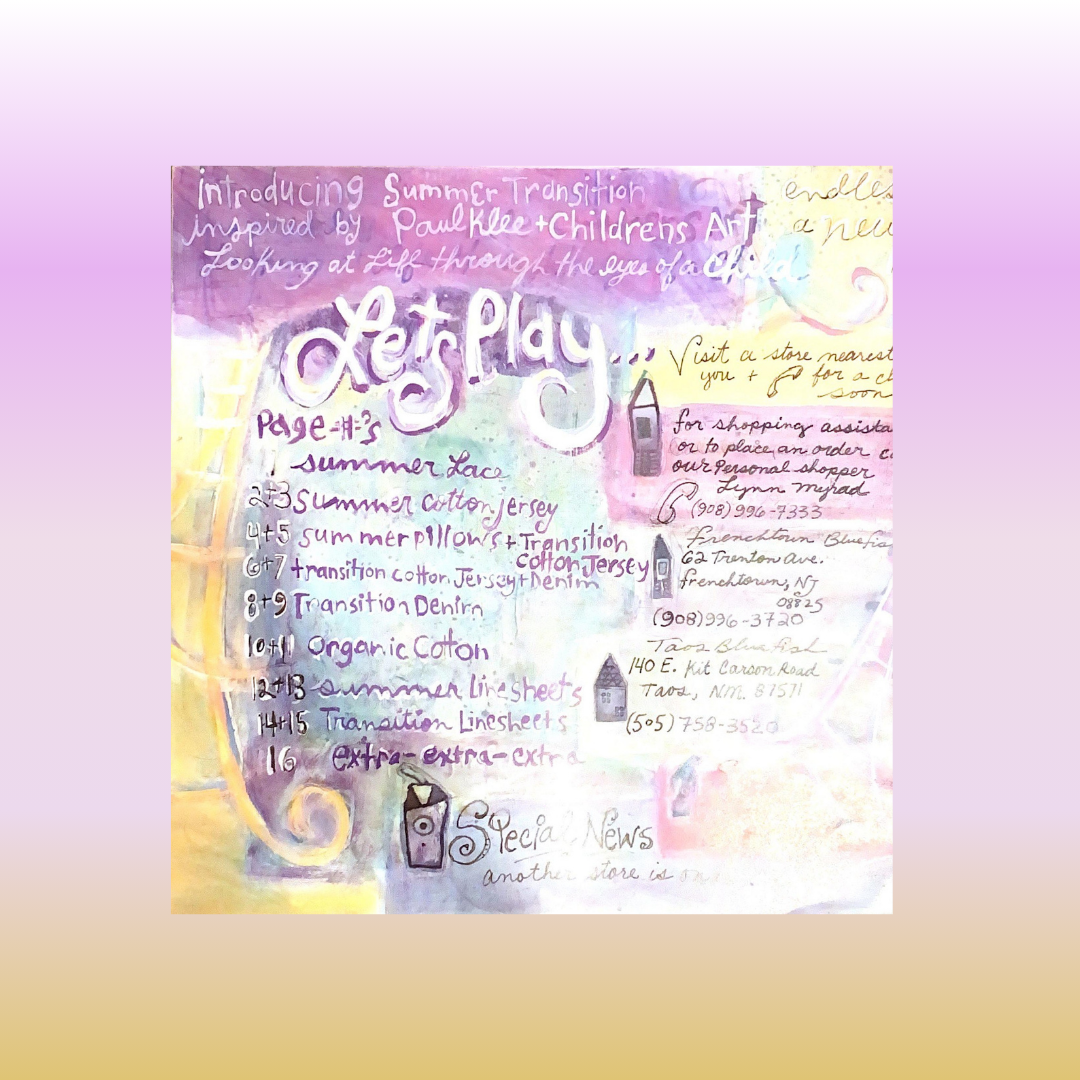 introducing Summer Transition
inspired by Paul Klee + Childrens Art
Looking at Life through the eyes of a child
endles
a new
Let's Play...
Page #'s
1 summer Lace
2+3 Summer cotton jersey
4+5 summer pillows + Transition
cotton Jersey
6+7 transition cotton Jersey + Denim
8+9 Transition Denim
10+11 Organic Cotton
12+13 summer linesheets
14+15 Transition Linesheets
16 extra-extra-extra
Special News
another store is on
Visit a store nearest
you + for a c
soon
for shopping assista
or to place an order c
our Personal shopper
Lynn Myrad
(908) 996-7333
Frenchtown Bluefis
62 Trenton Ave.
frenchtown, NJ
08825
(908) 996-3720
Taos Bluefish
140 E. Kit Carson Road
Taos, N.M. 87571
(505) 758-3520